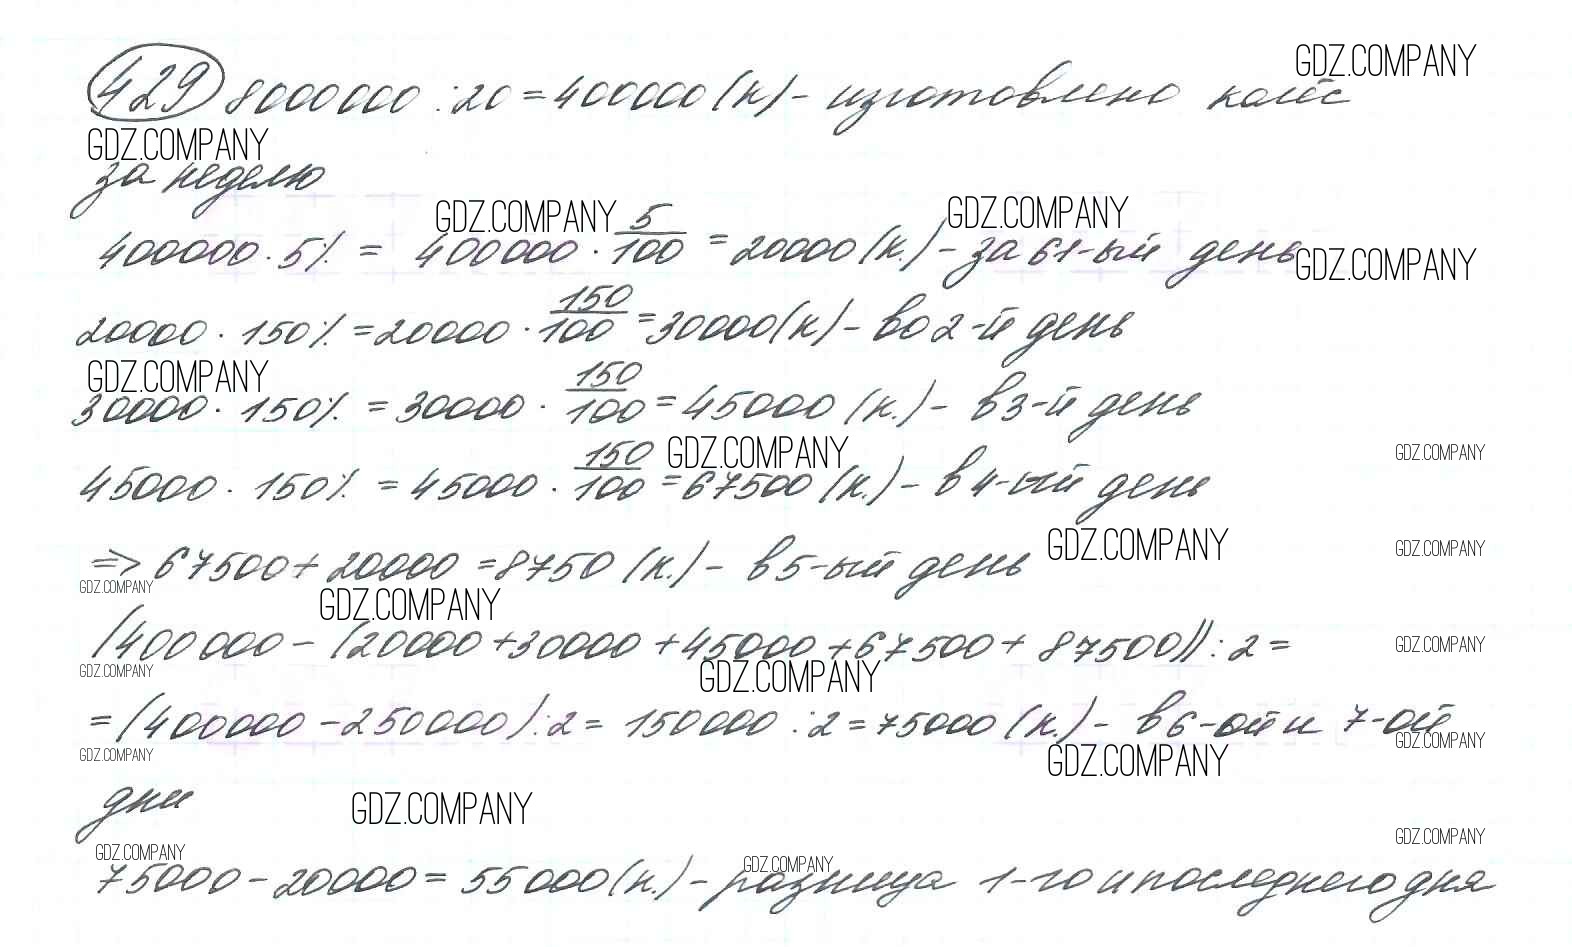 429 8000000 : 20 = 400000 (к) - изготовлено колёс
GDZ.COMPANY
GDZ.COMPANY
за неделю
GDZ.COMPANY GDZ.COMPANY
400000 · 5% = 400000 · 5/100 = 20000 (к.) - за 61-ый день
GDZ.COMPANY
20000 · 150% = 20000 · 150/100 = 30000 (к) - во 2-й день
GDZ.COMPANY
30000 · 150% = 30000 · 150/100 = 45000 (к.) - в 3-й день
GDZ.COMPANY GDZ.COMPANY
45000 · 150% = 45000 · 150/100 = 67500 (к.) - в 4-ый день
GDZ.COMPANY GDZ.COMPANY
=> 67500 + 20000 = 8750 (к.) - в 5-ый день
GDZ.COMPANY GDZ.COMPANY
(400000 - (20000 + 30000 + 45000 + 67500 + 87500)) : 2 =
GDZ.COMPANY
GDZ.COMPANY GDZ.COMPANY
= (400000 - 250000) : 2 = 150000 : 2 = 75000 (к.) - в 6-ой и 7-ой
GDZ.COMPANY GDZ.COMPANY GDZ.COMPANY
дни
GDZ.COMPANY
GDZ.COMPANY
GDZ.COMPANY GDZ.COMPANY
75000 - 20000 = 55000 (к.) - разница 1-го и последнего дня